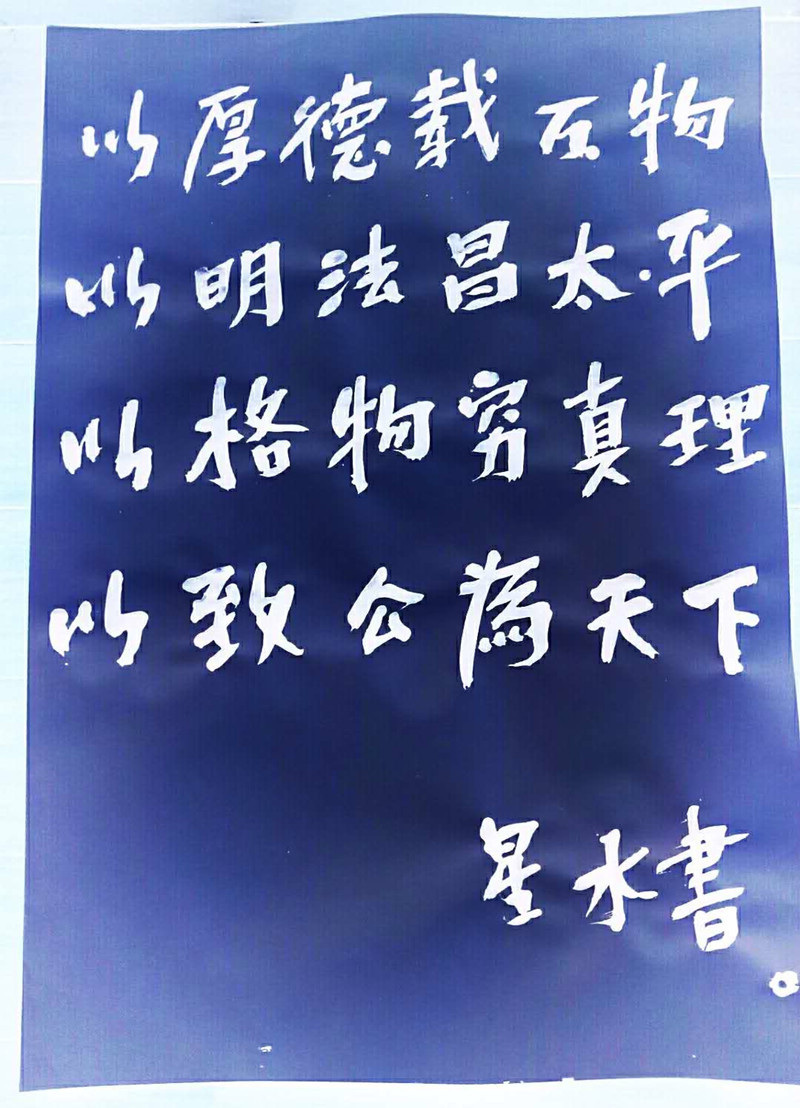 以厚德载万物
以明法昌太平
以格物穷真理
以致公為天下
星水書